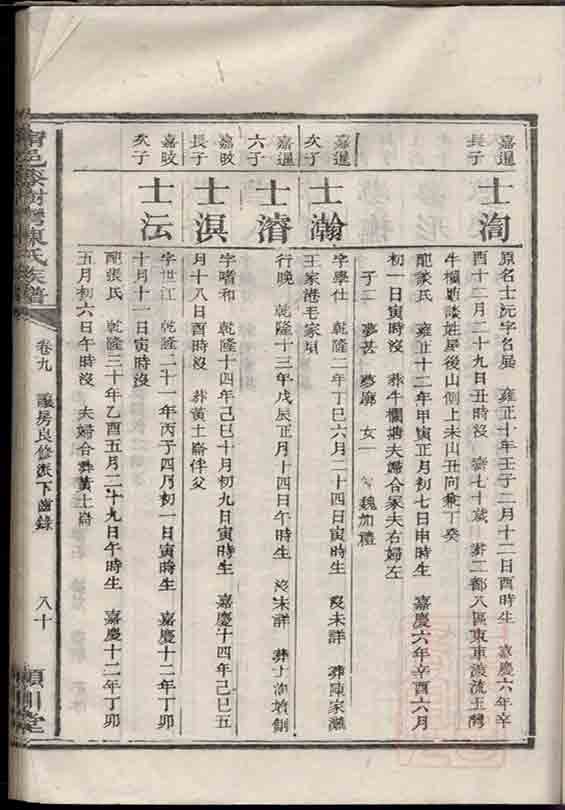 嘉暹
長子
士洵
原名士沅字名展　雍正十年壬子二月十二日酉時生　嘉慶六年辛
酉十二月二十九日丑時沒　壽七十歲　葬二都八區東車渡流玉灣
牛欄塘談姓屋後山側上未山丑向兼丁癸
配談氏　雍正十二年甲寅正月初七日申時生　嘉慶六年辛酉六月
初一日寅時沒　葬牛欄塘夫婦合冢夫右婦左
子二　夢甚　夢廓　女一　魏加禮
嘉暹
次子
士瀚
字學仕　乾隆二年丁巳六月二十四日寅時生　沒未詳　葬陳家灘
王家港毛家垻
嘉暹
六子
士濬
行晚　乾隆十三年戊辰正月十四日午時生　沒未詳　葬
嘉旼
長子
士淏
字嗜和　乾隆十四年己巳十月初九日寅時生　嘉慶十四年己巳五
月十八日酉時沒　葬黃土崙伴父
嘉旼
次子
士沄
字世江　乾隆二十一年丙子四月初一日寅時生　嘉慶十二年丁卯
十月十一日寅時沒
配張氏　乾隆三十年乙酉五月二十九日午時生　嘉慶十二年丁卯
五月初六日午時沒　夫婦合葬黃土崙
陳氏族譜
卷九　讓房良修派下齒錄
八十
潁川堂